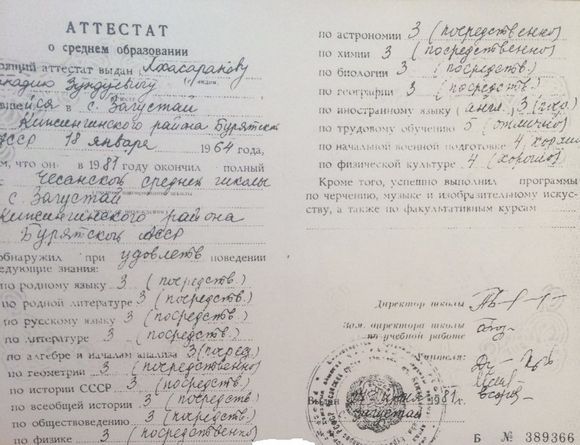 АТТЕСТАТ
о среднем образовании
тоящий аттестат выдан Лхасаранову
надию Зундуевичу
вшемуся в с. Загустай
Кижингинского района Бурятск
АССР 18 января 1964 года,
м, что он в 1981 году окончил полный
Чесанской средней школы
с. Загустай
Кижингинского района
Бурятской АССР
обнаружил при удовлетв. поведении
едующие знания:
по родному языку 3 (посредств.)
по родной литературе 3 (посредств.)
по русскому языку 3 (посредств.)
по литературе 3 (посредств.)
по алгебре и началам анализа 3 (посред.)
по геометрии 3 (посредственно)
по истории СССР 3 (посредств.)
по всеобщей истории 3 (посредств.)
по обществоведению 3 (посредств.)
по физике 3 (посредственно)
по астрономии 3 (посредственно)
по химии 3 (посредственно)
по биологии 3 (посредств.)
по географии 3 (посредств.)
по иностранному языку (англ.) 3
по трудовому обучению 5 (отлично)
по начальной военной подготовке 4
по физической культуре 4 (хорошо)
Кроме того, успешно выполнил программы
по черчению, музыке и изобразительному искус-
ству, а также по факультативным курсам
Директор школы
Зам. директора школы
по учебной работе
Учителя:
июня 1981 г.
Загустай
Б № 389366